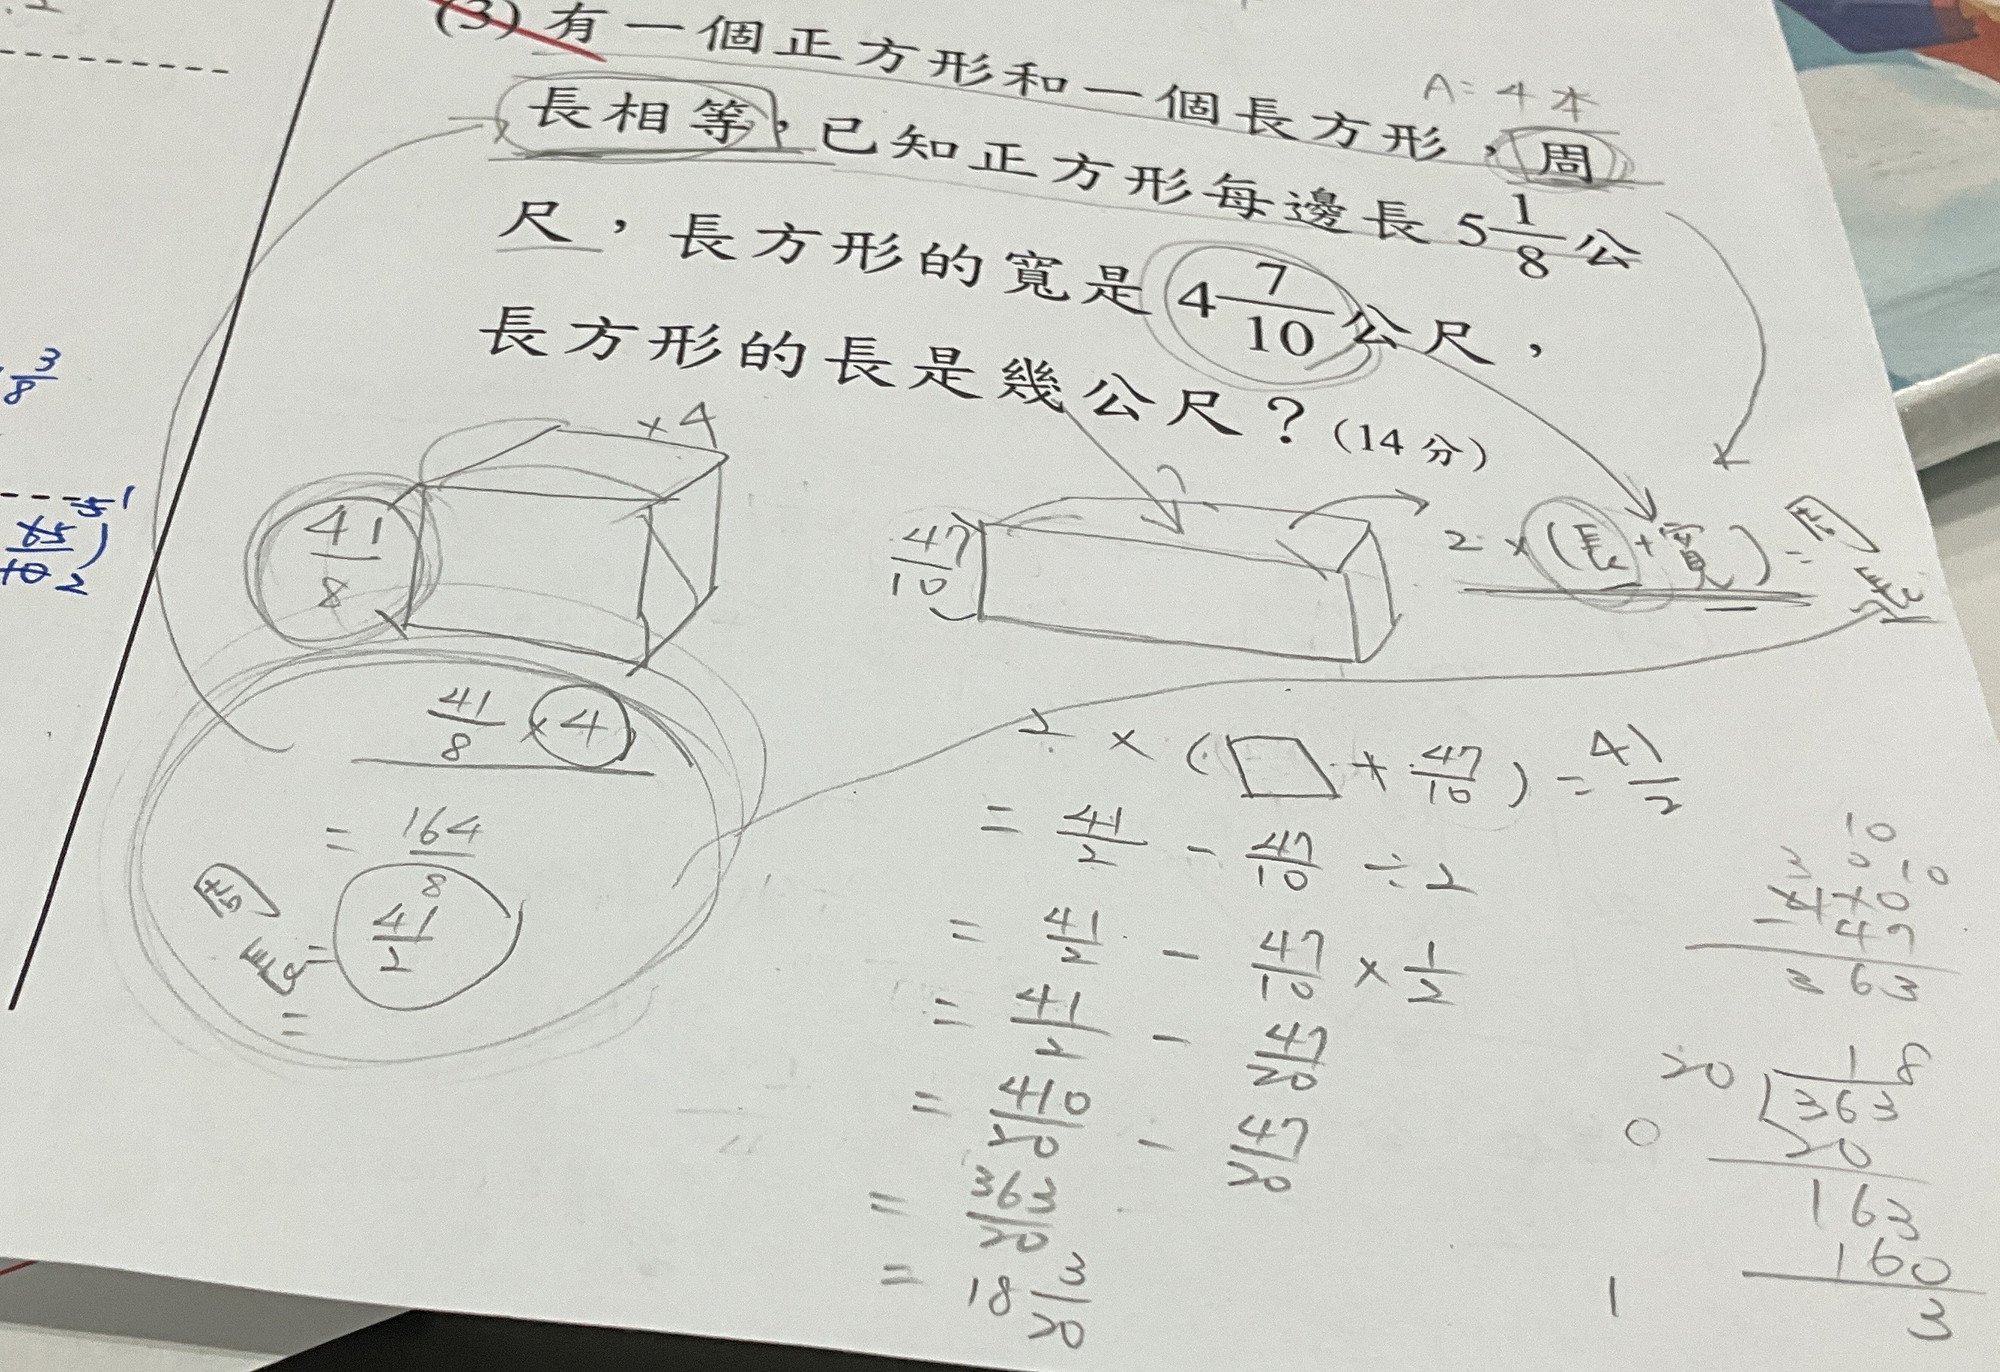 (3) 有一個正方形和一個長方形，周
長相等，已知正方形每邊長 5 1/8 公
尺，長方形的寬是 4 7/10 公尺，
長方形的長是幾公尺？(14 分)
×4
41/8
47/10
?
2×(長+寬)=周長
41/8 ×4
= 164/8
周長= 41/2
=
2 × (□ + 47/10) = 41/2
= 41/2 - 47/10 ÷ 2
= 41/2 - 47/10 × 1/2
= 41/2 - 47/20
= 410/20 - 47/20
= 363/20
= 18 3/20
10
3 0 10
410
- 47
363
18
20 363
0
20
163
160
1
3
3/8
65/10 2